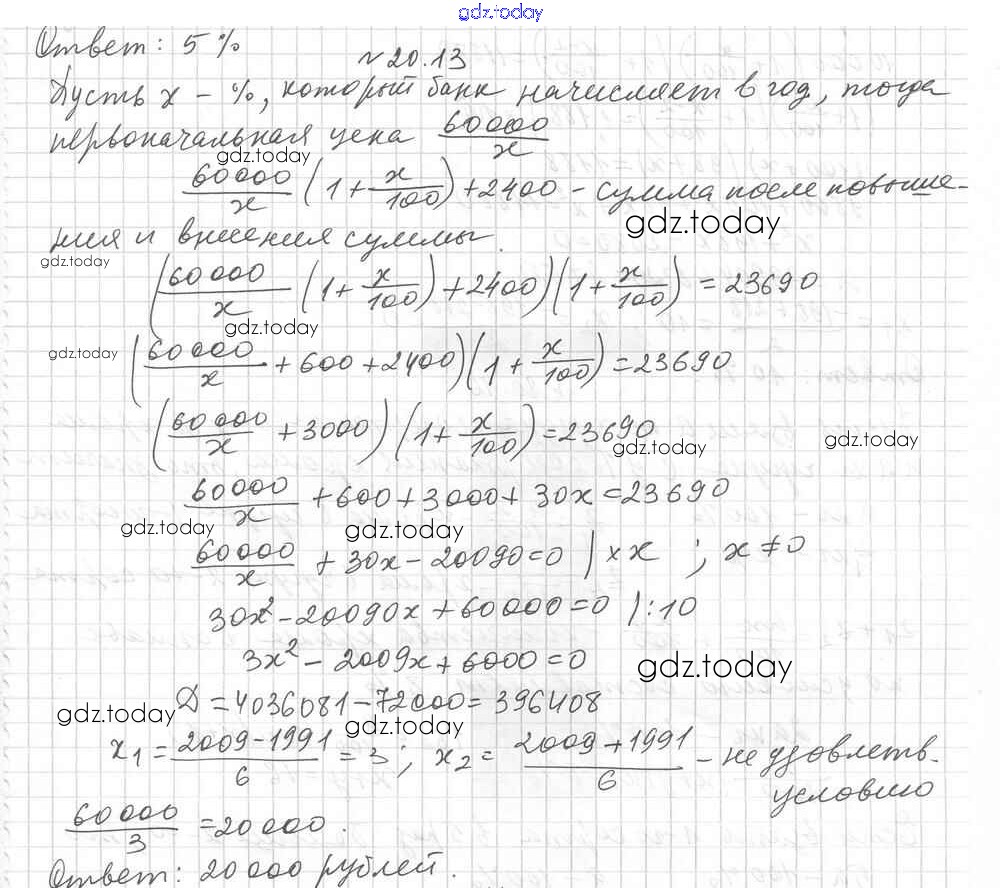 gdz.today
Ответ: 5 %
№ 20.13
Пусть x - %, который банк начисляет в год, тогда
первоначальная цена 60000/x
gdz.today
60000/x (1 + x/100) + 2400 - сумма после повыше-
gdz.today
ния и внесения суммы.
gdz.today
(60000/x (1 + x/100) + 2400)(1 + x/100) = 23690
gdz.today
gdz.today
(60000/x + 600 + 2400)(1 + x/100) = 23690
(60000/x + 3000)(1 + x/100) = 23690
gdz.today
gdz.today
60000/x + 600 + 3000 + 30x = 23690
gdz.today
gdz.today
60000/x + 30x - 20090 = 0 | × x ; x ≠ 0
30x² - 20090x + 60000 = 0 | :10
3x² - 2009x + 6000 = 0
gdz.today
Д = 4036081 - 72000 = 396408
gdz.today
gdz.today
x₁ = (2009 - 1991)/6 = 3 ; x₂ = (2009 + 1991)/6 - не удовлетв.
условию
60000/3 = 20000.
Ответ: 20 000 рублей.